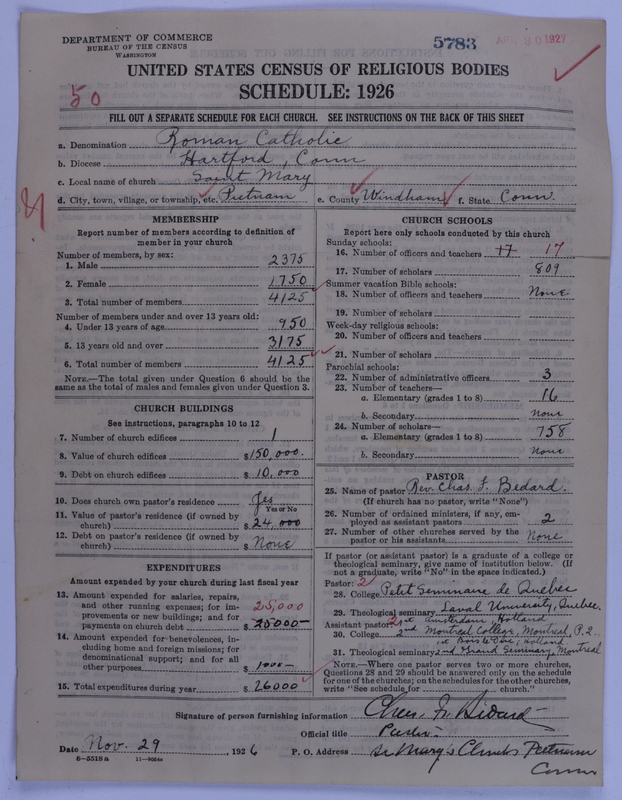 DEPARTMENT OF COMMERCE
BUREAU OF THE CENSUS
WASHINGTON
5783
APR 30 1927
UNITED STATES CENSUS OF RELIGIOUS BODIES
SCHEDULE: 1926
50
FILL OUT A SEPARATE SCHEDULE FOR EACH CHURCH. SEE INSTRUCTIONS ON THE BACK OF THIS SHEET
a. Denomination Roman Catholic
b. Diocese Hartford, Conn
c. Local name of church Saint Mary
d. City, town, village, or township, etc. Putnam e. County Windham f. State Conn.
MEMBERSHIP
Report number of members according to definition of
member in your church
Number of members, by sex:
1. Male 2375
2. Female 1750
3. Total number of members 4125
Number of members under and over 13 years old:
4. Under 13 years of age 950
5. 13 years old and over 3175
6. Total number of members 4125
NOTE.—The total given under Question 6 should be
same as the total of males and females given under Question 3.
CHURCH BUILDINGS
See instructions, paragraphs 10 to 12
7. Number of church edifices 1
8. Value of church edifices $150,000.
9. Debt on church edifices $10,000
10. Does church own pastor's residence Yes
Yes or No
11. Value of pastor's residence (if owned by
church) $24,000
12. Debt on pastor's residence (if owned by
church) $None
EXPENDITURES
Amount expended by your church during last fiscal year
13. Amount expended for salaries, repairs,
and other running expenses; for im- 25,000
provements or new buildings; and for
payments on church debt $25000—
14. Amount expended for benevolences, in-
cluding home and foreign missions; for
denominational support; and for all
other purposes $1000—
15. Total expenditures during year $26000
CHURCH SCHOOLS
Report here only schools conducted by this church
Sunday schools:
16. Number of officers and teachers 17 17
17. Number of scholars 809
Summer vacation Bible schools:
18. Number of officers and teachers None
19. Number of scholars
Week-day religious schools:
20. Number of officers and teachers
21. Number of scholars
Parochial schools:
22. Number of administrative officers 3
23. Number of teachers—
a. Elementary (grades 1 to 8) 16
b. Secondary None
24. Number of scholars—
a. Elementary (grades 1 to 8) 758
b. Secondary None
PASTOR
25. Name of pastor Rev. Chas. F. Bedard.
(If church has no pastor, write "None")
26. Number of ordained ministers, if any, em-
ployed as assistant pastors 2
27. Number of other churches served by the
pastor or his assistants None
If pastor (or assistant pastor) is a graduate of a college or
theological seminary, give name of institution below. (If
not a graduate, write "No" in the space indicated.)
Pastor: 2
28. College Petit Seminaire de Quebec
29. Theological seminary Laval University, Quebec.
Assistant pastor: 2 1st Amsterdam, Holland
30. College 2nd Montreal College, Montreal, P.Q.
1st Holland
31. Theological seminary 2nd Grand Seminary, Montreal
NOTE.—Where one pastor serves two or more churches,
Questions 28 and 29 should be answered only on the schedule
for one of the churches; on the schedules for the other churches,
write "See schedule for church."
Signature of person furnishing information Chas. F. Bedard
Official title Pastor.
Date Nov. 29, 1926 P. O. Address St Mary's Church Putnam
Conn
8—5518a 11—9064a